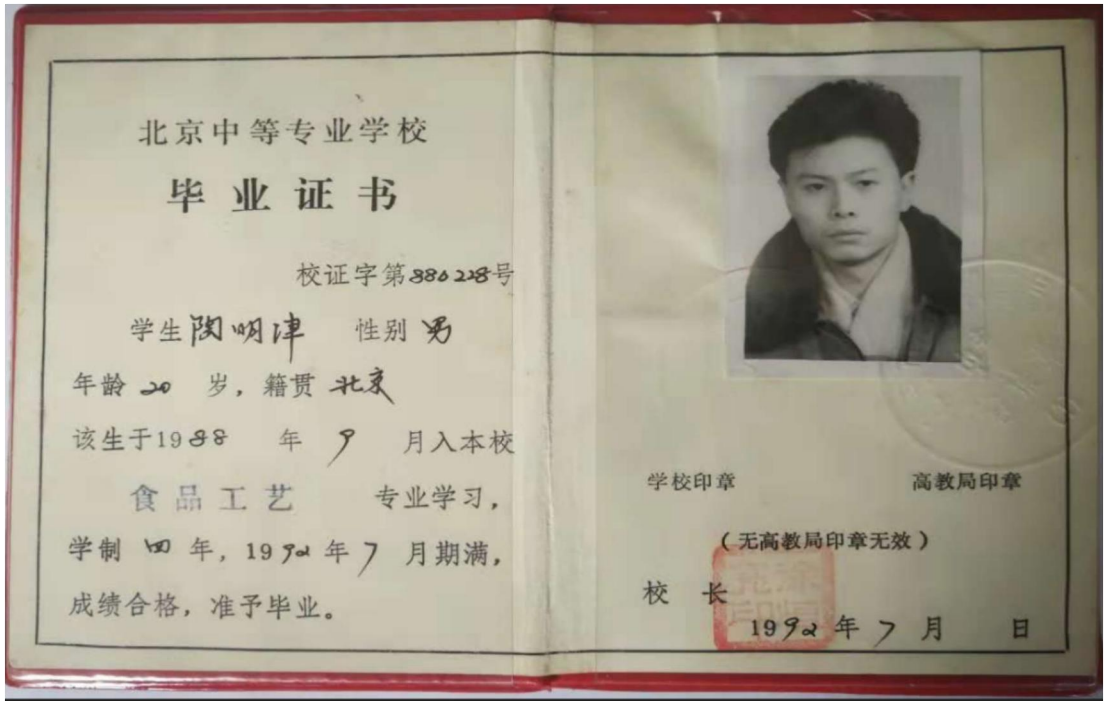 北京中等专业学校
毕业证书
校证字第880228号
学生陶明津 性别男
年龄20岁，籍贯北京
该生于1988年9月入本校
食品工艺 专业学习，
学制四年，1992年7月期满，
成绩合格，准予毕业。
学校印章 高教局印章
（无高教局印章无效）
校 长
1992年7月 日